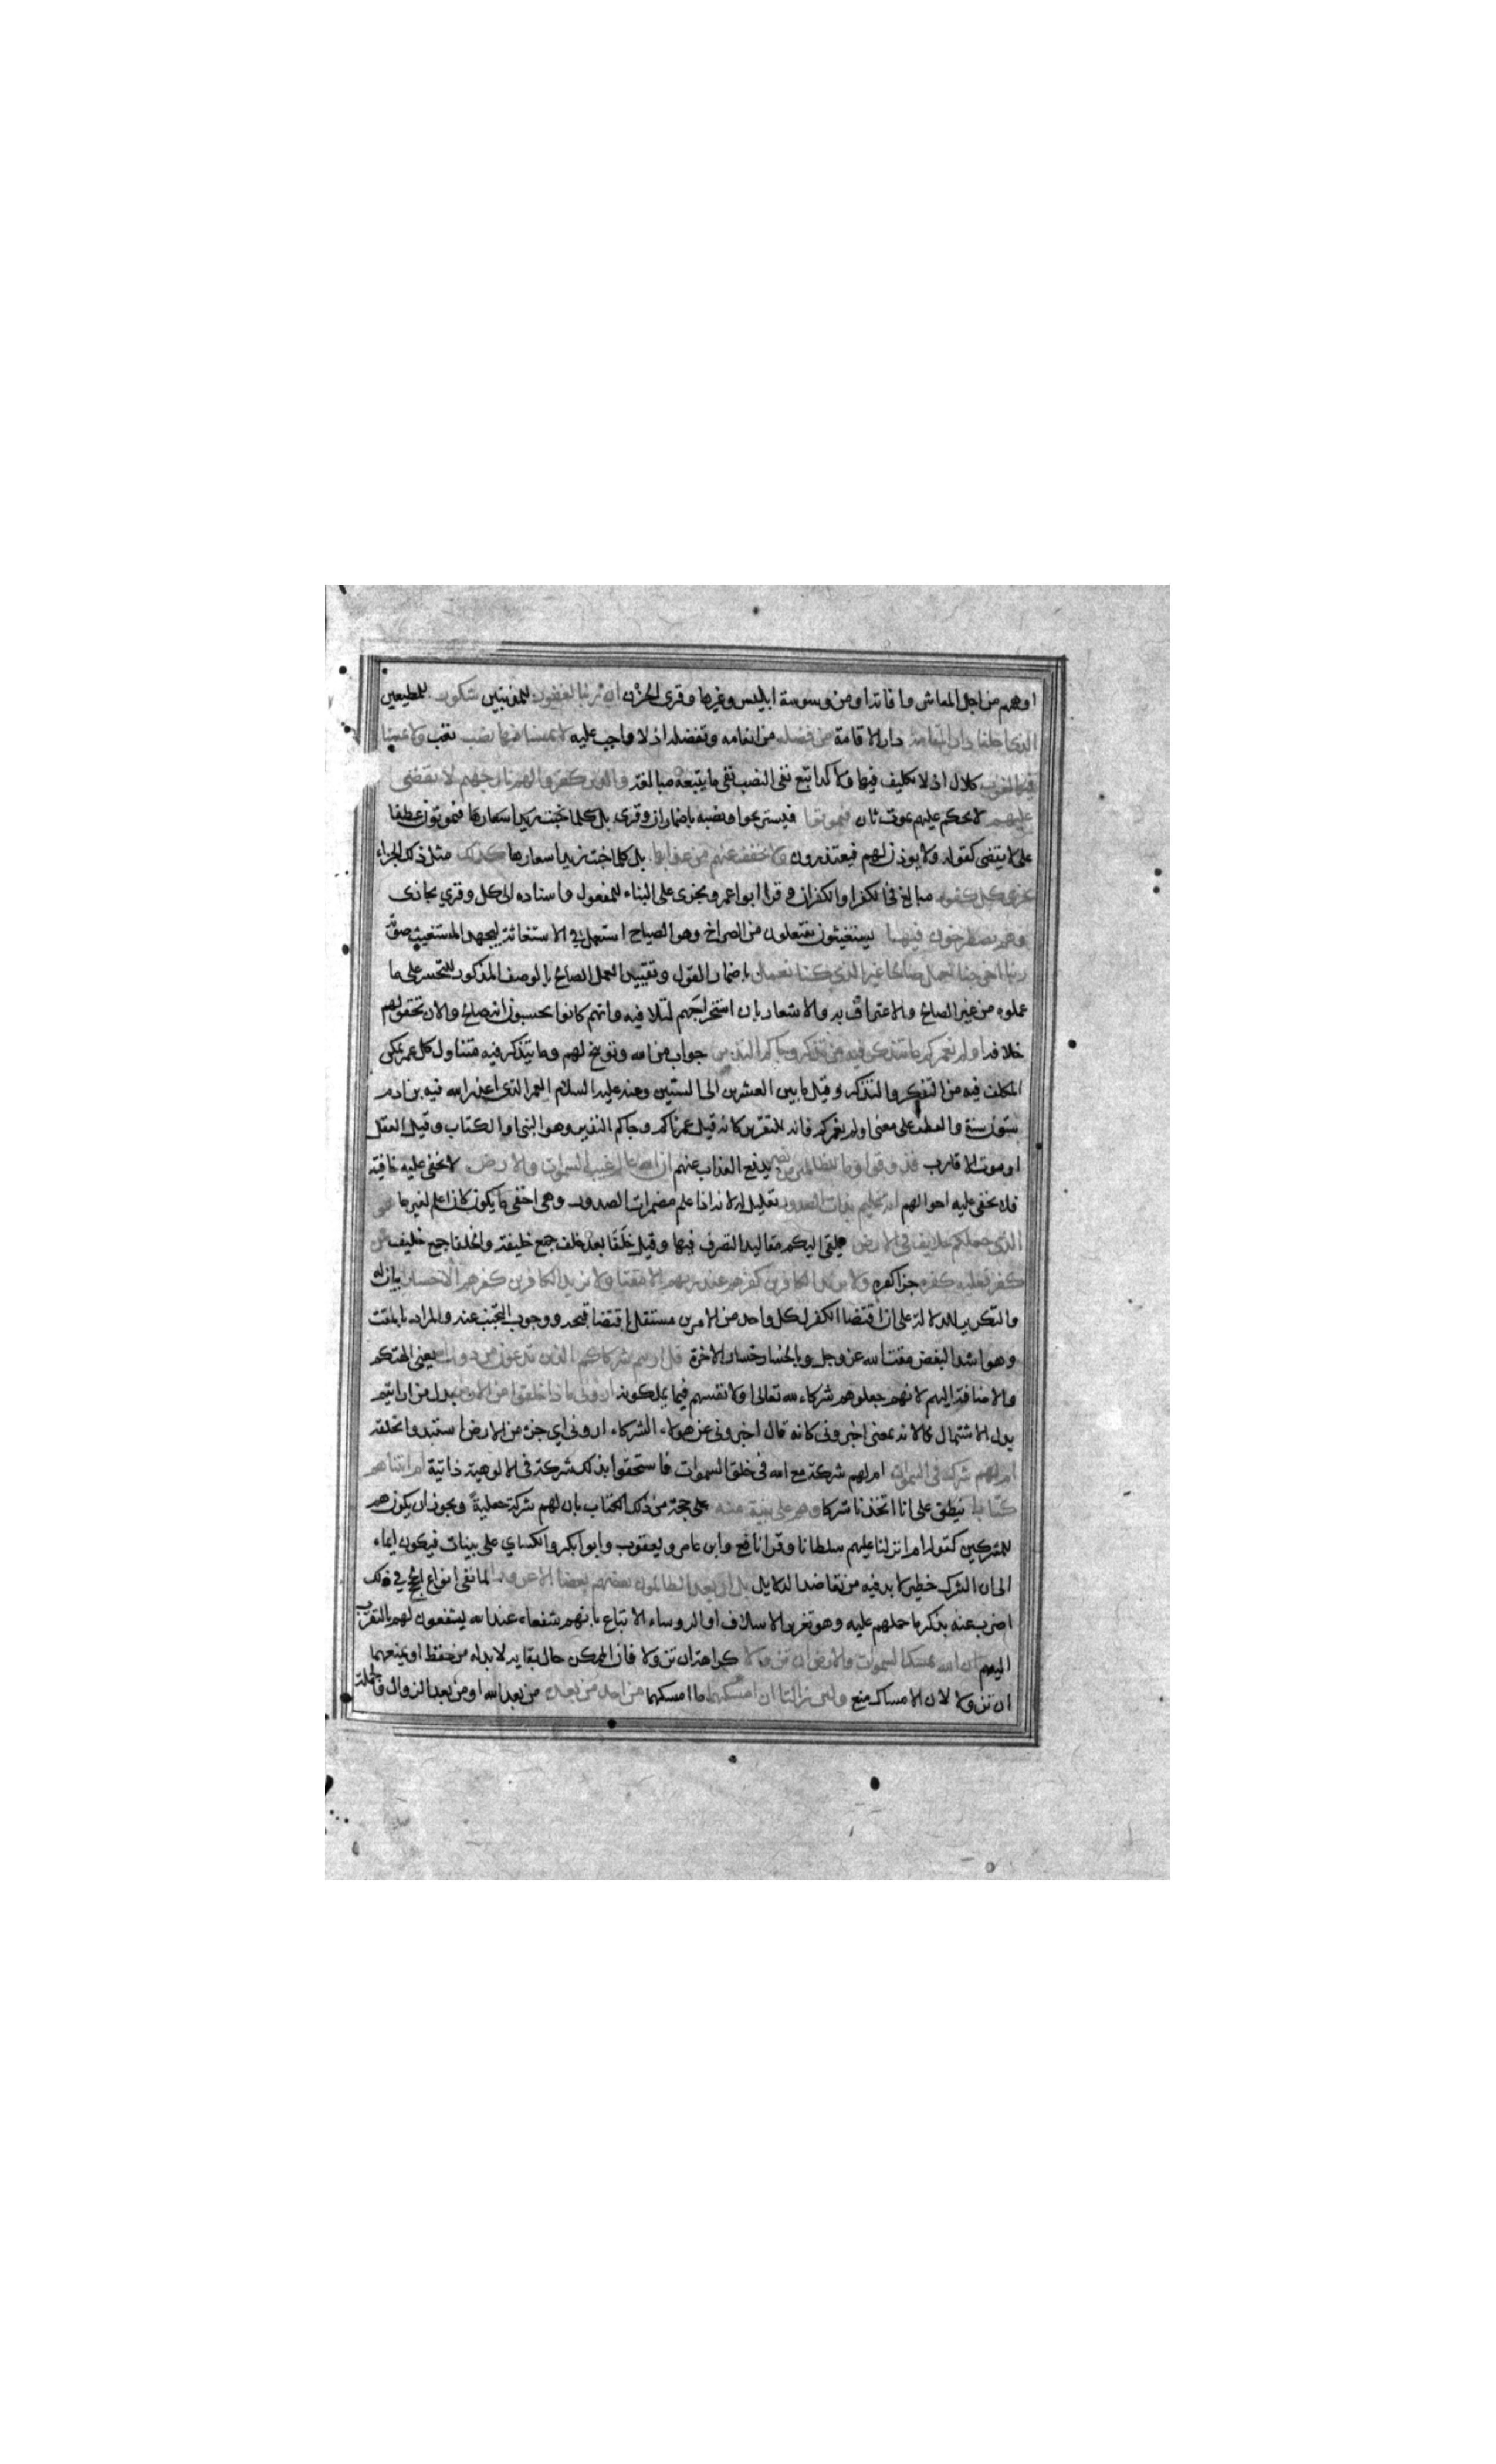 اوهمهم من اجل المعاش وافاتدا ومن وسوسة ابليس وغيرها وقرى الحزن ان ربنا لغفور للمذنبين شكور للمطيعين
الذي احلنا دار المقامة دار الاقامة من فضله من انعامه وتفضله اذ لا واجب عليه لا يمسنا فيها نصب تعب ولا يمسنا
فيها لغوب كلال اذ لا تكليف فيها ولا كد اتبع نفى النصب نفى ما يتبعه مبالغة والذين كفروا لهم نار جهنم لا يقضى
عليهم لا يحكم عليهم بموت ثان فيموتوا فيستريحوا ونصبه باضمار ان وقرى بل كلما خبت زيد اسعارها فيموتون عطفا
على لا يقضى كقوله ولا يوذن لهم فيعتذرون ولا يخفف عنهم من عذابها بل كلما خبت زيد اسعارها كذلك مثل ذلك الجزاء
نجزي كل كفور مبالغ في الكفر او الكفران وقرا ابو اعمرو يجزى على البناء للمفعول واسناده الى كل وقري يجازى
وهم يصطرخون فيها يستغيثون يفتعلون من الصراخ وهو الصياح استعمل في الاستغاثة لجهد المستغيث صوته
ربنا اخرجنا نعمل صالحا غير الذي كنا نعمل باضمار القول وتقييد العمل الصالح بالوصف المذكور للتحسر على ما
عملوه من غير الصالح والاعتراف به والاشعار بان استخراجهم لتلافيه وانهم كانوا يحسبون انه صالح والان تحقق لهم
خلافه اولم نعمركم ما يتذكر فيه من تذكر وجاكم النذير جواب من الله وتوبيخ لهم وما يتذكر فيه متناول كل عمر تمكن
المكلف فيه من التفكر والتذكر وقيل ما بين العشرين الى الستين وعنه عليه السلام العمر الذي اعذر الله فيه بن ادم
ستون سنة والعطف على معنى اولم نعمركم فانه للتقرير كانه قيل عمرناكم وجاكم النذير وهو النبي او الكتاب وقيل العقل
او موت الاقارب فذوقوا وما للظالمين من نصير يدفع العذاب عنهم ان الله عالم غيب السموات والارض لا يخفى عليه خافية
فلا يخفى عليه احوالهم انه عليم بذات الصدور تعليل له لانه اذا علم مضمرات الصدور وهي اخفى ما يكون كان اعلم لغيرها هو
الذي جعلكم خلايف في الارض ملقى اليكم مقاليد التصرف فيها وقيل خلفا بعد خلف جمع خليفة والخلفا جمع خليف فمن
كفر فعليه كفره جزا كفره ولا يزيد الكافرين كفرهم عند ربهم الا مقتا ولا يزيد الكافرين كفرهم الا خسارا بيان له
والتكرير للدلالة على ان اقتضا الكفر لكل واحد من الامرين مستقل باقتضا قبحه ووجوب التجنب عنه والمراد بالمقت
وهو اشد البغض مقت الله عز وجل وبالخسار خسار الاخرة قل ارايتم شركاكم الذين تدعون من دون الله يعني الهتكم
والاضافة اليهم لانهم جعلوهم شركاء لله تعالى او لانفسهم فيما يملكونه اروني ماذا خلقوا من الارض بدل من ارايتم
بدل الاشتمال لانه بمعنى اخبروني كانه قال اخبروني عن هولاء الشركاء اروني اي جزء من الارض استبدوا بخلقه
ام لهم شرك في السموات ام لهم شركة مع الله في خلق السموات فاستحقوا بذلك شركة في الالوهية ذاتية ام اتيناهم
كتابا ينطق على انا اتخذنا شركا وهم على بينة منه على حجة من ذلك الكتاب بان لهم شركة جعلية ويجوز ان يكون هم
للمشركين كقوله ام انزلنا عليهم سلطانا وقرا نافع وابن عامر ويعقوب وابو ابكر والكساي على بينات فيكون ايماء
الى ان الشرك خطير لا بد فيه من تعاضد الدلايل بل ان يعد الظالمون بعضهم بعضا الا غرورا لما نفى انواع الحجج في ذلك
اضرب عنه بذكر ما حملهم عليه وهو تغرير الاسلاف او الروساء الاتباع بانهم شفعاء عند الله يشفعون لهم بالتقرب
اليهم ان الله يمسك السموات والارض ان تزولا كراهة ان تزولا فان الممكن حال بقايه لا بد له من حفظ او يمنعهما
ان تزولا لان الامساك منع ولئن زالتا ان امسكهما ما امسكهما من احد من بعده من بعد الله او من بعد الزوال والجملة